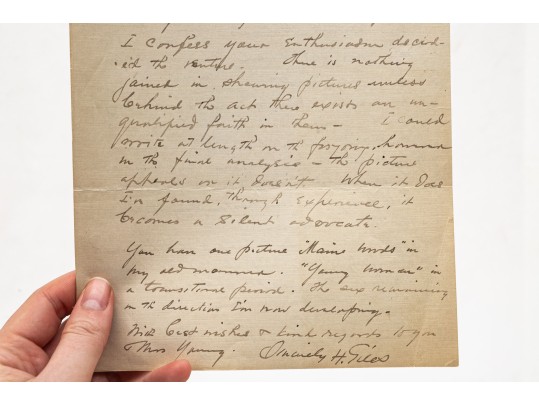 I confess your enthusiasm decid-
ed the venture. There is nothing
gained in showing pictures unless
behind the act there exists an un-
qualified faith in them — I could
write at length on the foregoing, however
in the final analysis — the picture
appeals or it doesn't. When it does
I've found, through experience, it
becomes a silent advocate.
You have one picture "Maine Woods" in
my old manner. "Young Women" in
a transitional period. The six remaining
in the direction I'm now developing.
With best wishes & kind regards to you
Mrs Young. Sincerely H.